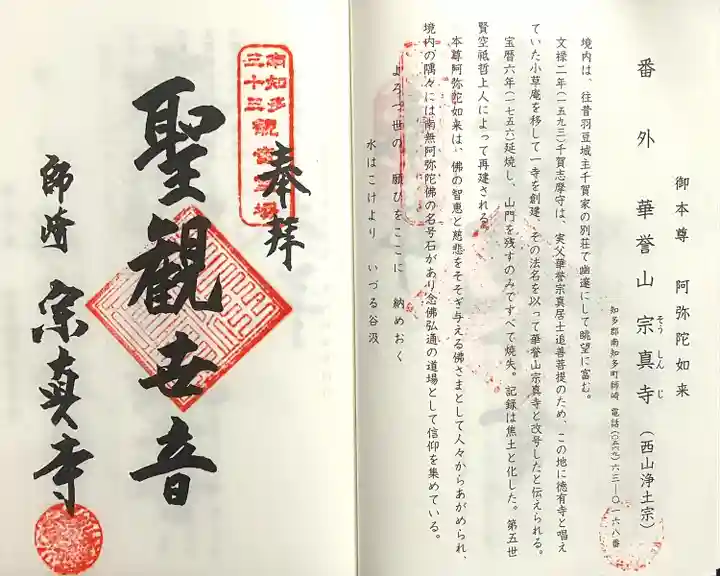 番外 華誉山 宗真寺（西山浄土宗）
そう しん じ
御本尊 阿弥陀如来
知多郡南知多町師崎 電話（〇五六九）六三―〇一六八番
境内は、往昔羽豆城主千賀家の別荘で幽邃にして眺望に富む。
文禄二年（一五九三）千賀志摩守は、実父華誉宗真居士追善菩提のため、この地に徳有寺と唱え
ていた小草庵を移して一寺を創建、その法名を以って華誉山宗真寺と改号したと伝えられる。
宝暦六年（一七五六）延焼し、山門を残すのみですべて焼失。記録は焦土と化した。第五世
賢空祗哲上人によって再建される。
本尊阿弥陀如来は、佛の智恵と慈悲をそそぎ与える佛さまとして人々からあがめられ、
境内の隅々には南無阿弥陀佛の名号石があり念佛弘通の道場として信仰を集めている。
よろづ世の 願ひをここに 納めおく
水はこけより いづる谷汲
奉拝
南知多
三十三観音霊場
聖観世音
師崎 宗真寺